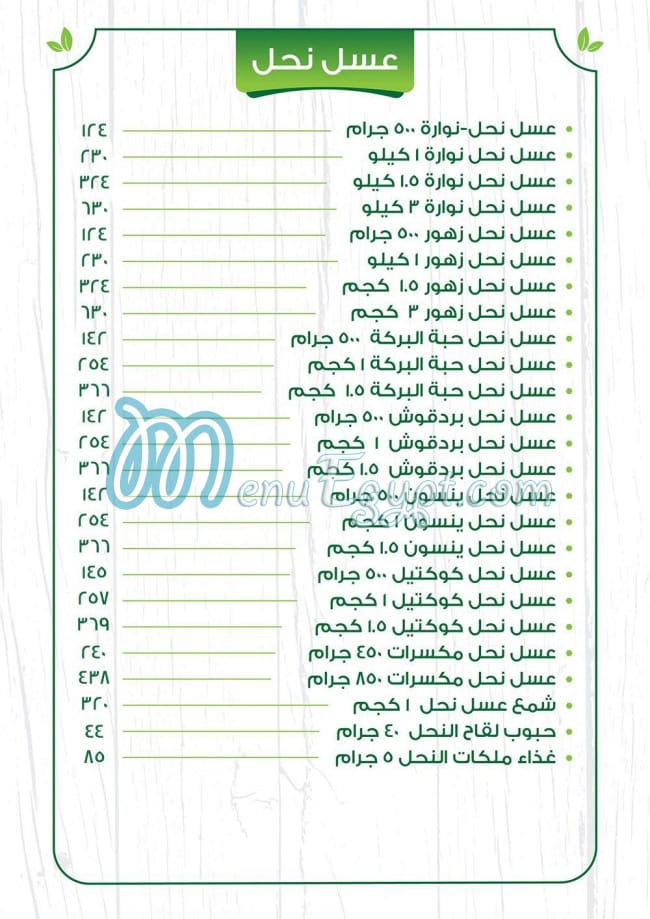 عسل نحل
• عسل نحل-نوارة ٥٠٠ جرام ١٢٤
• عسل نحل نوارة ١ كيلو ٢٣٠
• عسل نحل نوارة ١.٥ كيلو ٣٢٤
• عسل نحل نوارة ٣ كيلو ٦٣٠
• عسل نحل زهور ٥٠٠ جرام ١٢٤
• عسل نحل زهور ١ كيلو ٢٣٠
• عسل نحل زهور ١.٥ كجم ٣٢٤
• عسل نحل زهور ٣ كجم ٦٣٠
• عسل نحل حبة البركة ٥٠٠ جرام ١٤٢
• عسل نحل حبة البركة ١ كجم ٢٥٤
• عسل نحل حبة البركة ١.٥ كجم ٣٦٦
• عسل نحل بردقوش ٥٠٠ جرام ١٤٢
• عسل نحل بردقوش ١ كجم ٢٥٤
• عسل نحل بردقوش ١.٥ كجم ٣٦٦
• عسل نحل ينسون ٥٠٠ جرام ١٤٢
• عسل نحل ينسون ١ كجم ٢٥٤
• عسل نحل ينسون ١.٥ كجم ٣٦٦
• عسل نحل كوكتيل ٥٠٠ جرام ١٤٥
• عسل نحل كوكتيل ١ كجم ٢٥٧
• عسل نحل كوكتيل ١.٥ كجم ٣٦٩
• عسل نحل مكسرات ٤٥٠ جرام ٢٤٠
• عسل نحل مكسرات ٨٥٠ جرام ٤٣٨
• شمع عسل نحل ١ كجم ٣٢٠
• حبوب لقاح النحل ٤٠ جرام ٤٤
• غذاء ملكات النحل ٥ جرام ٨٥
MenuEgypt.com